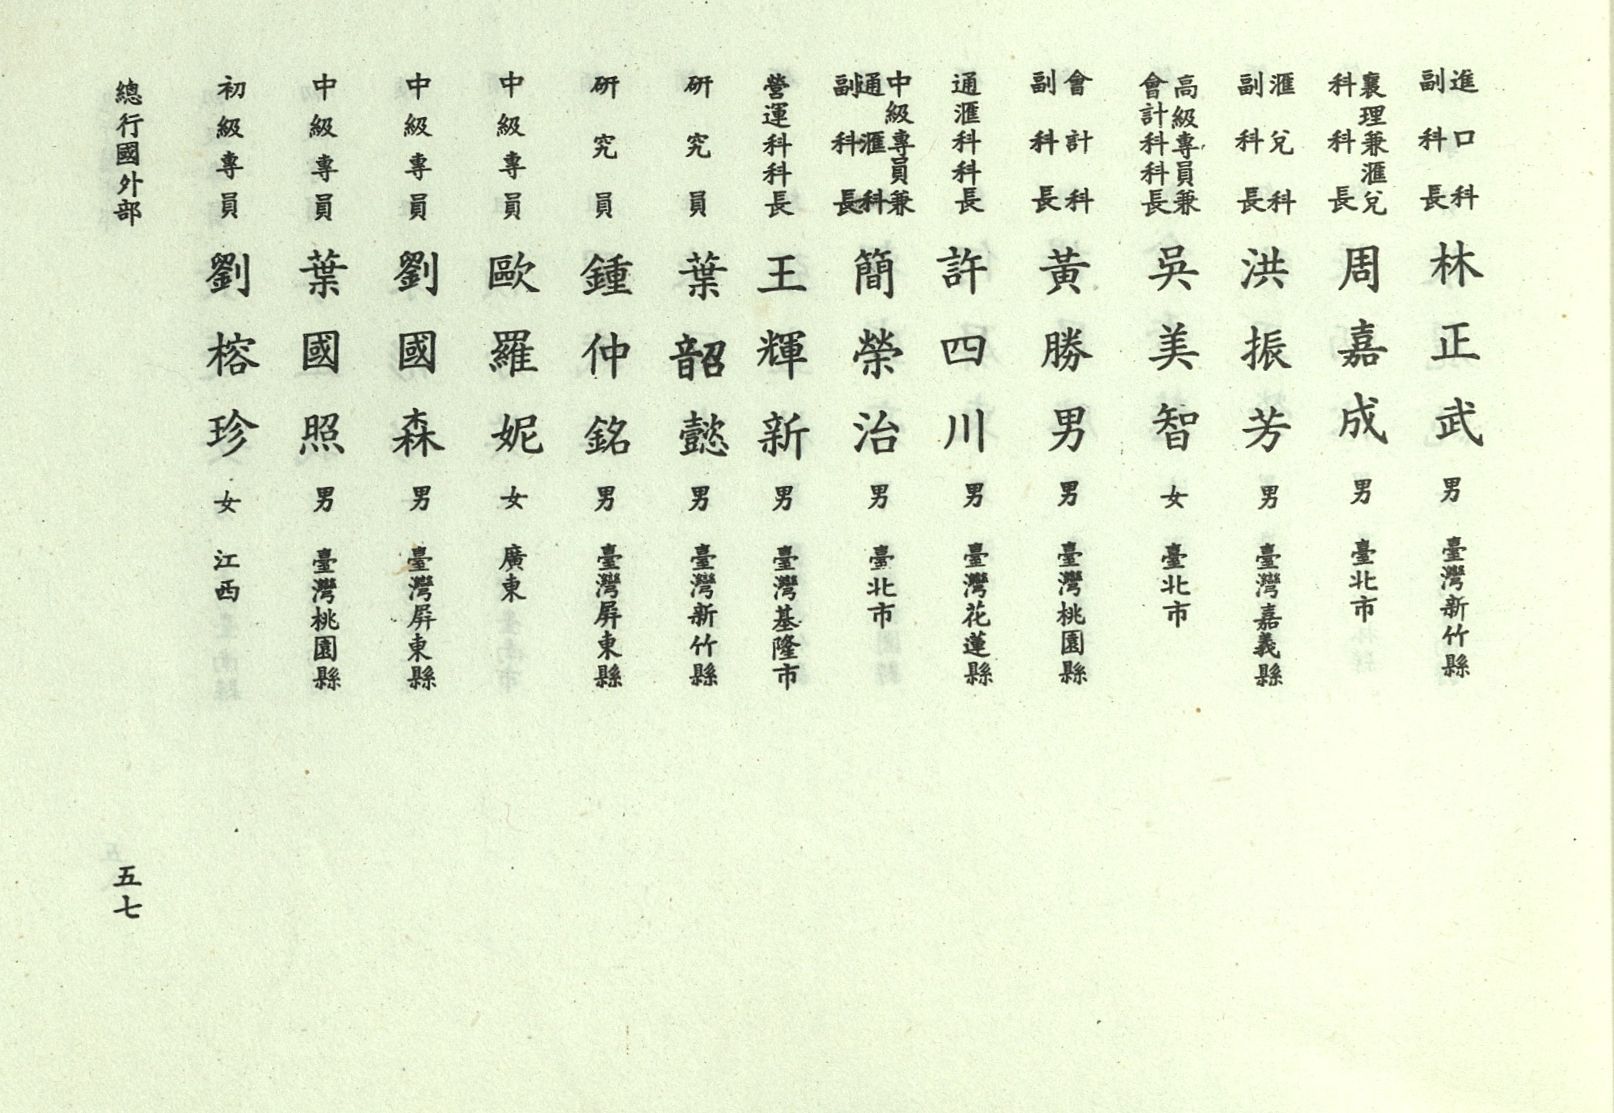 進口科副科長 林正武 男 臺灣新竹縣
襄理兼滙兌科科長 周嘉成 男 臺北市
滙兌科副科長 洪振芳 男 臺灣嘉義縣
高級專員兼會計科科長 吳美智 女 臺北市
會計科副科長 黃勝男 男 臺灣桃園縣
通滙科科長 許四川 男 臺灣花蓮縣
中級專員兼通滙科副科長 簡榮治 男 臺北市
營運科科長 王輝新 男 臺灣基隆市
研究員 葉韶懿 男 臺灣新竹縣
研究員 鍾仲銘 男 臺灣屏東縣
中級專員 歐羅妮 女 廣東
中級專員 劉國森 男 臺灣屏東縣
中級專員 葉國照 男 臺灣桃園縣
初級專員 劉榕珍 女 江西
總行國外部 五七